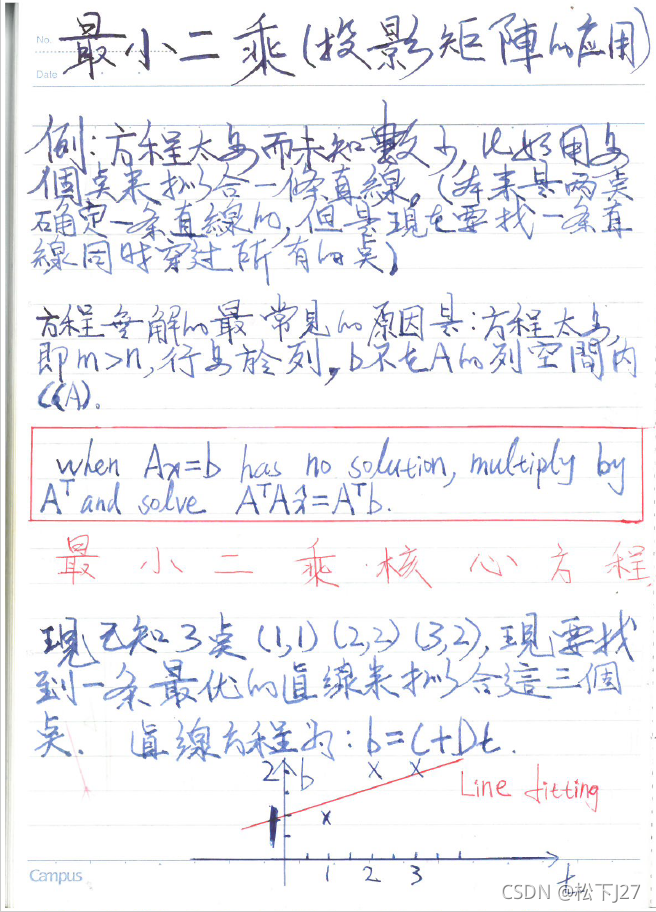 No.
Date
最小二乘(投影矩陣的应用)
例:方程太多而未知數少,比如用多
個点来拟合一條直線。(本来是两点
确定一条直線的,但是現在要找一条直
線同时穿过所有的点)
方程無解的最常見的原因是:方程太多,
即m>n,行多於列,b不在A的列空間内
C(A).
when Ax=b has no solution, multiply by
Aᵀ and solve AᵀAx̂=Aᵀb.
最小二乘核心方程
現已知3点(1,1)(2,2)(3,2),現要找
到一条最优的直線来拟合這三個
点. 直線方程为:b=C+Dt.
2 b
Line fitting
1 2 3
t
Campus
CSDN @松下J27